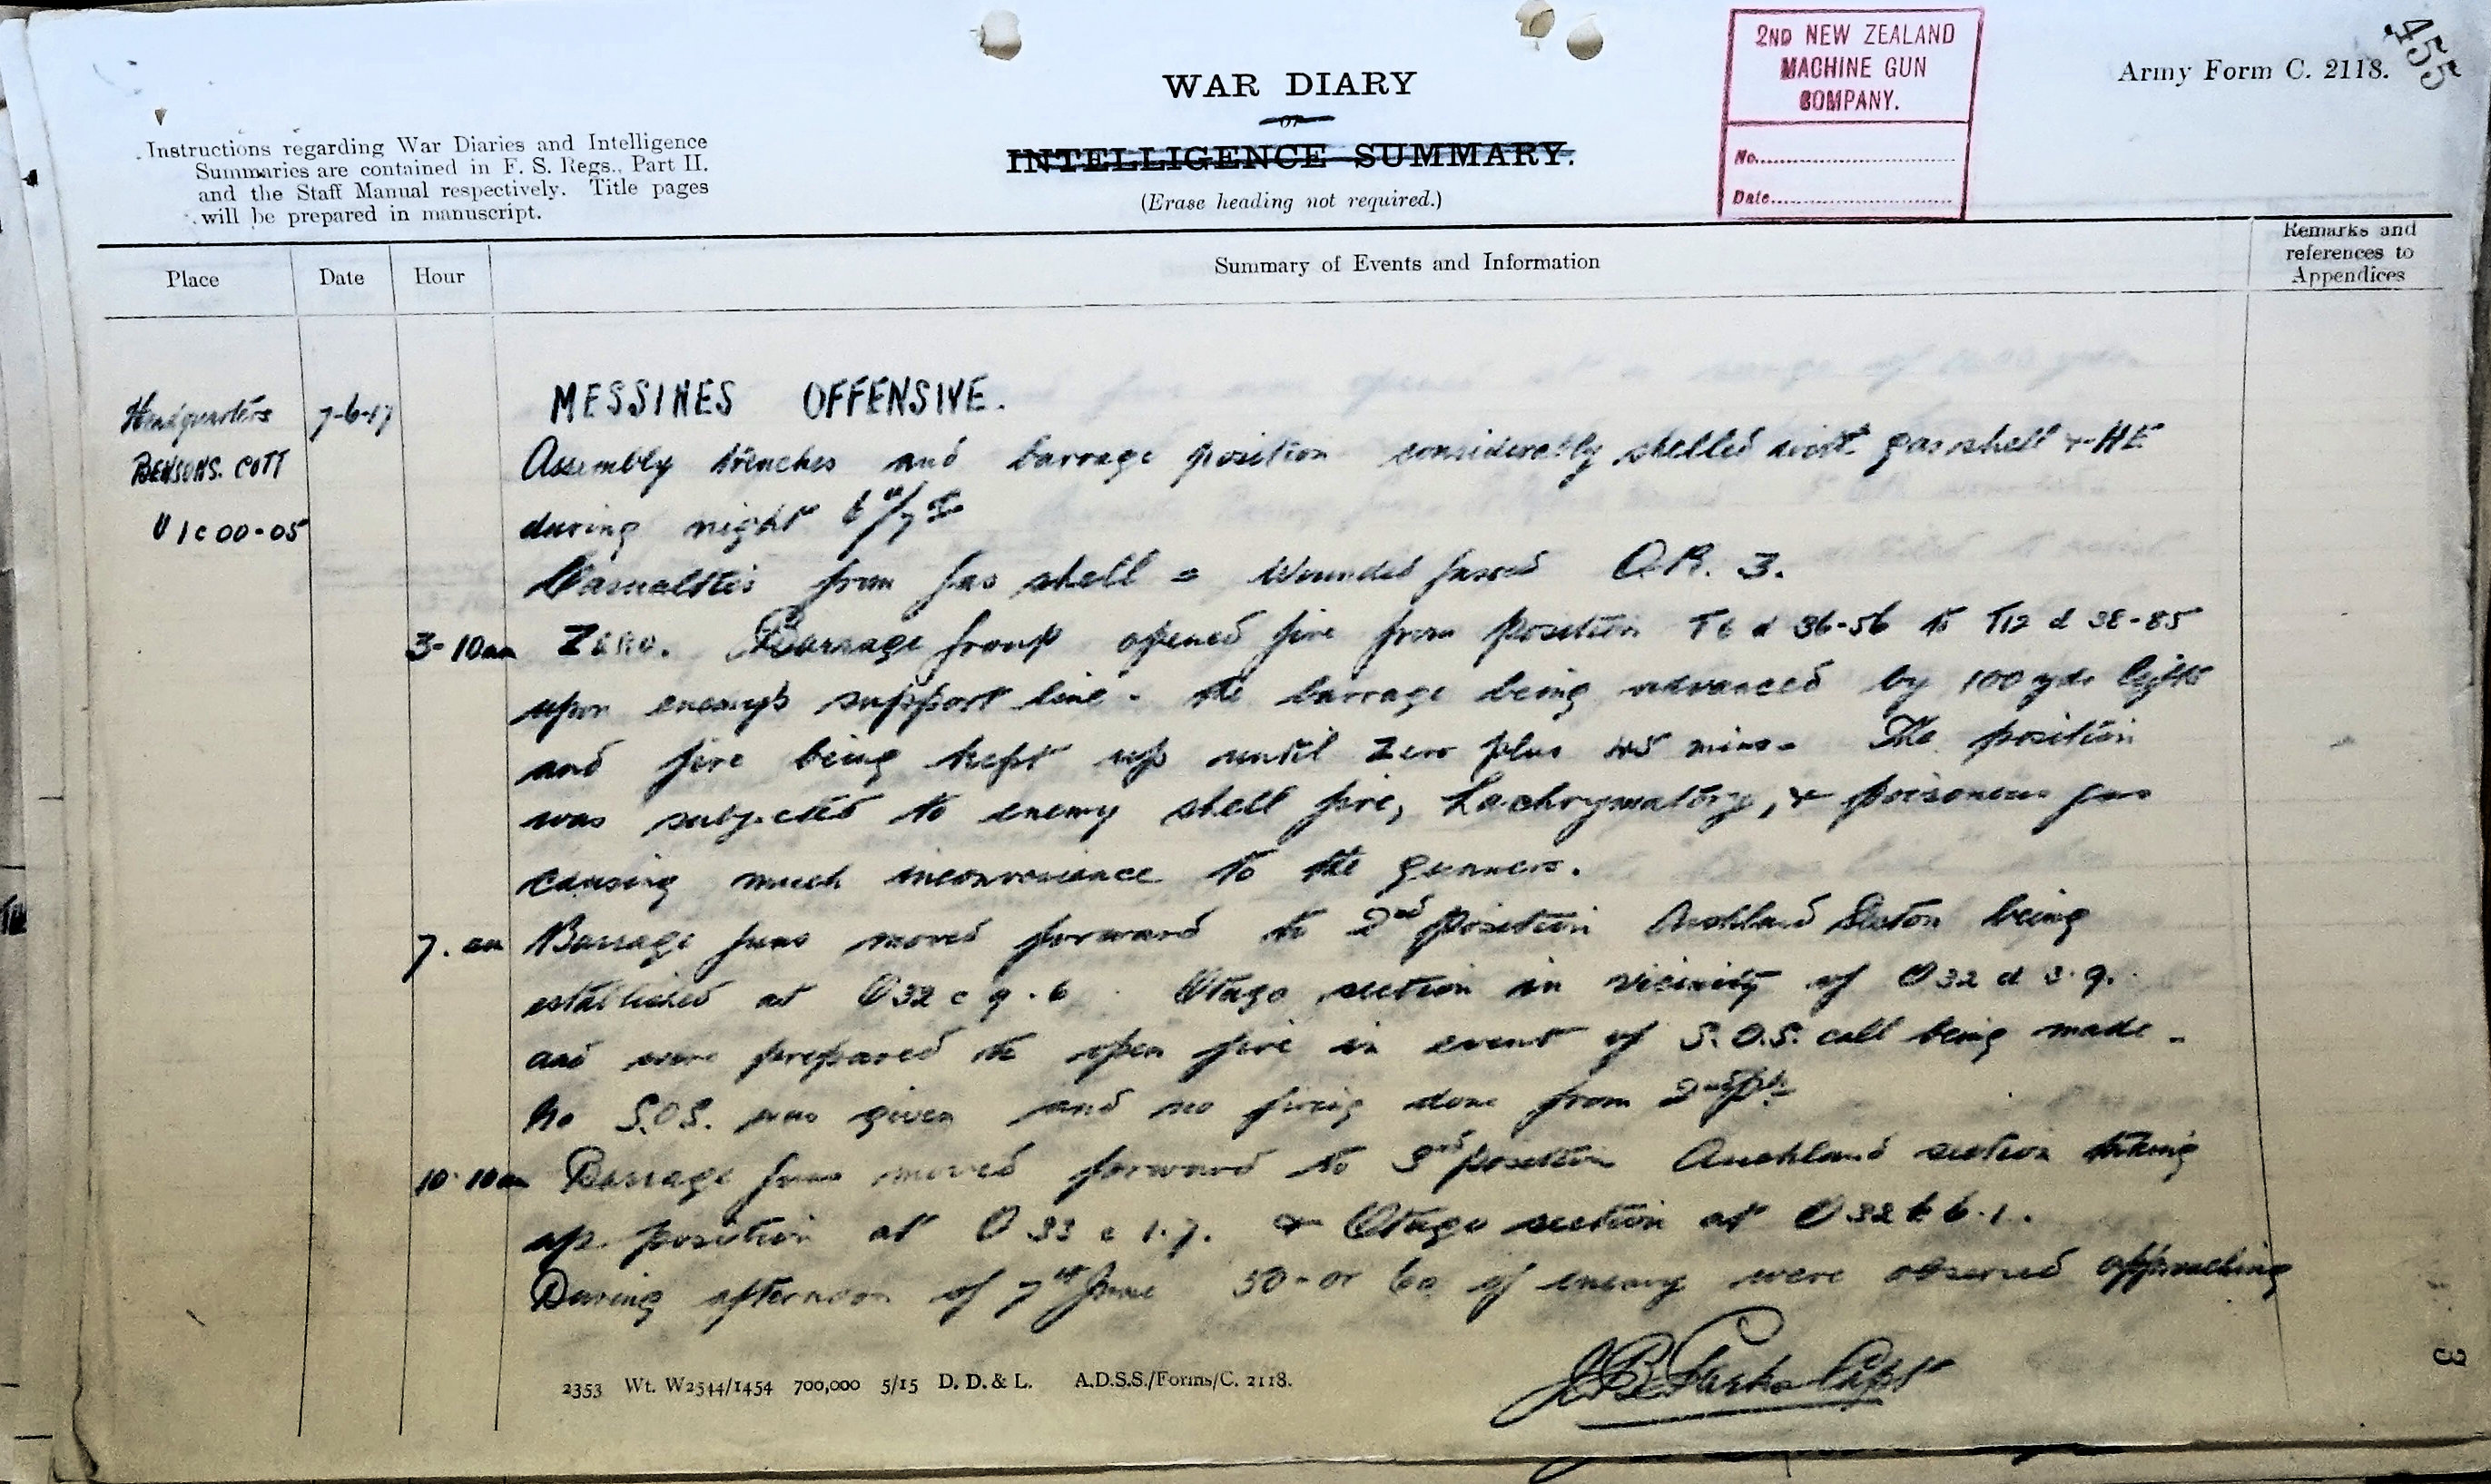 455
2ND NEW ZEALAND
MACHINE GUN
COMPANY.
No.
Date
Army Form C. 2118.
WAR DIARY
or
INTELLIGENCE SUMMARY.
(Erase heading not required.)
Instructions regarding War Diaries and Intelligence
Summaries are contained in F. S. Regs., Part II.
and the Staff Manual respectively. Title pages
will be prepared in manuscript.
Place Date Hour Summary of Events and Information Remarks and references to Appendices
MESSINES OFFENSIVE.
Headquarters 7-6-17
BENSONS. COTT
U 1 c 00-05
Assembly trenches and barrage position considerably shelled with gas shell + HE
during night 6th/7th
Casualties from gas shell = Wounded gassed O.R. 3.
3-10am Zero. Barrage group opened fire from position T6 d 36-56 to T12 d 38-85
upon enemy's support line - the barrage being advanced by 100 yds lifts
and fire being kept up until Zero plus 45 mins. The position
was subjected to enemy shell fire, Lachrymatory, + poisonous gas
causing much inconvenience to the gunners.
7. am Barrage guns moved forward to 2nd position Auckland Section being
established at O32 c 9.6 Otago section in vicinity of O32 d 3.9.
and were prepared to open fire in event of S.O.S. call being made -
No S.O.S. was given and no firing done from 2nd
10.10am Barrage guns moved forward to 3rd position Auckland section taking
up position at O 33 c 1.7. + Otago section at O32 b 6.1.
During afternoon of 7th June 50 - or 60 of enemy were observed approaching
Capt
2353 Wt. W2544/1454 700,000 5/15 D. D. & L. A.D.S.S./Forms/C. 2118.
3